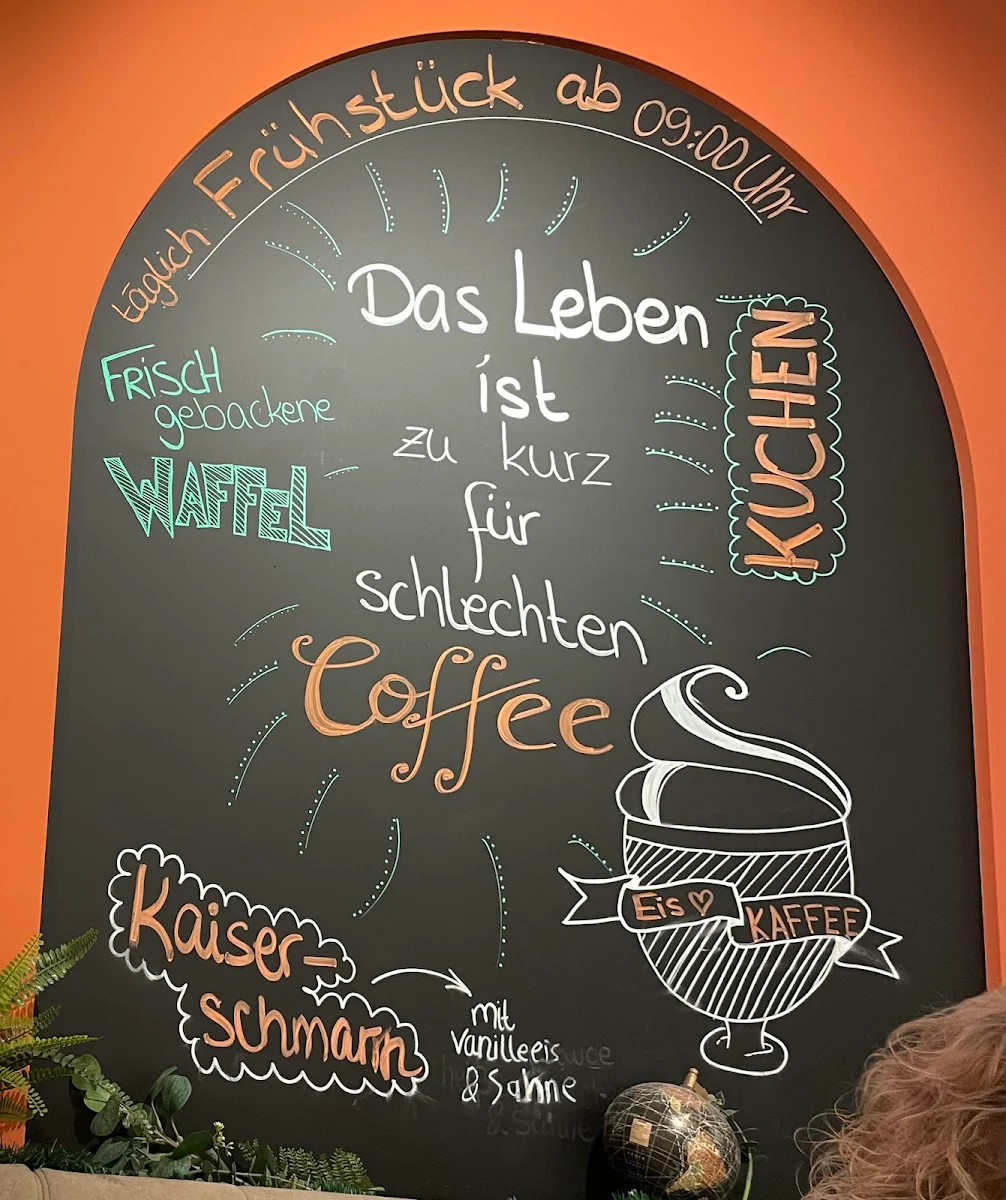 täglich Frühstück ab 09:00 Uhr
Das Leben
ist
zu kurz
für
schlechten
Coffee
FRiSCH
gebackene
WAFFEL
KUCHEN
Eis ♡ KAFFEE
Kaiser-
schmarrn
mit
vanilleeis
& Sahne